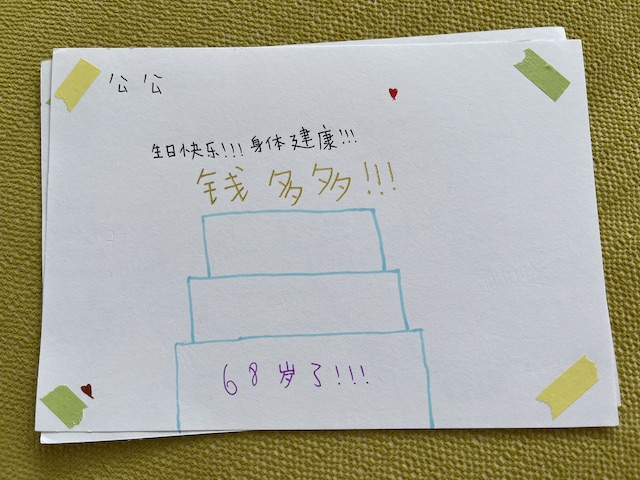 公公
生日快乐!!! 身体建康!!!
钱多多!!!
68岁了!!!